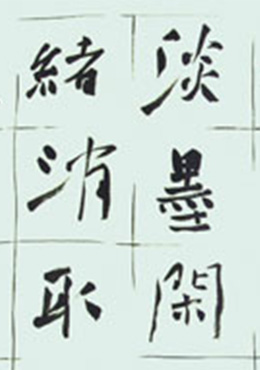 淡墨閑
緒消取